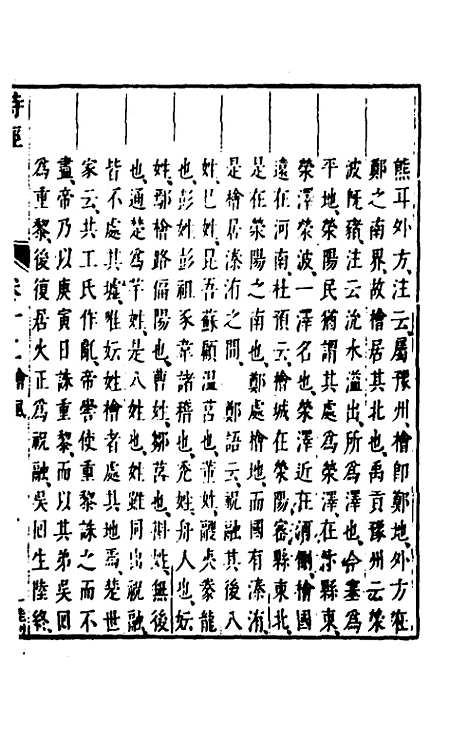 熊耳外方、注云、屬豫州、檜即鄭地、外方在
鄭之南界、故檜居其北也、禹貢豫州云、滎
波既豬、注云、沇水溢出所為澤也、今塞為
平地、滎陽民猶謂其處為滎澤、在其縣東、
滎澤滎波一澤名也、滎澤近在河側、檜國
遠在河南、杜預云、檜城在滎陽密縣東北、
是在滎陽之南也、鄭處檜地、而國有溱洧、
是檜居溱洧之間、鄭語云、祝融其後八
姓、巳姓昆吾蘇顧溫莒也、董姓鬷夷豢龍
也、彭姓彭祖豕韋諸稽也、禿姓舟人也、妘
姓鄢檜路偪陽也、曹姓鄒莒也、斟姓無後
也、通楚為芈姓、是八姓也、姓雖同出祝融、
皆不處其墟、唯妘姓檜者處其地焉、楚世
家云、共工氏作亂、帝嚳使重黎誅之而不
盡、帝乃以庚寅日誅重黎、而以其弟吳回
為重黎、後復居火正、為祝融、吳回生陸終、
詩經
卷十二檜風